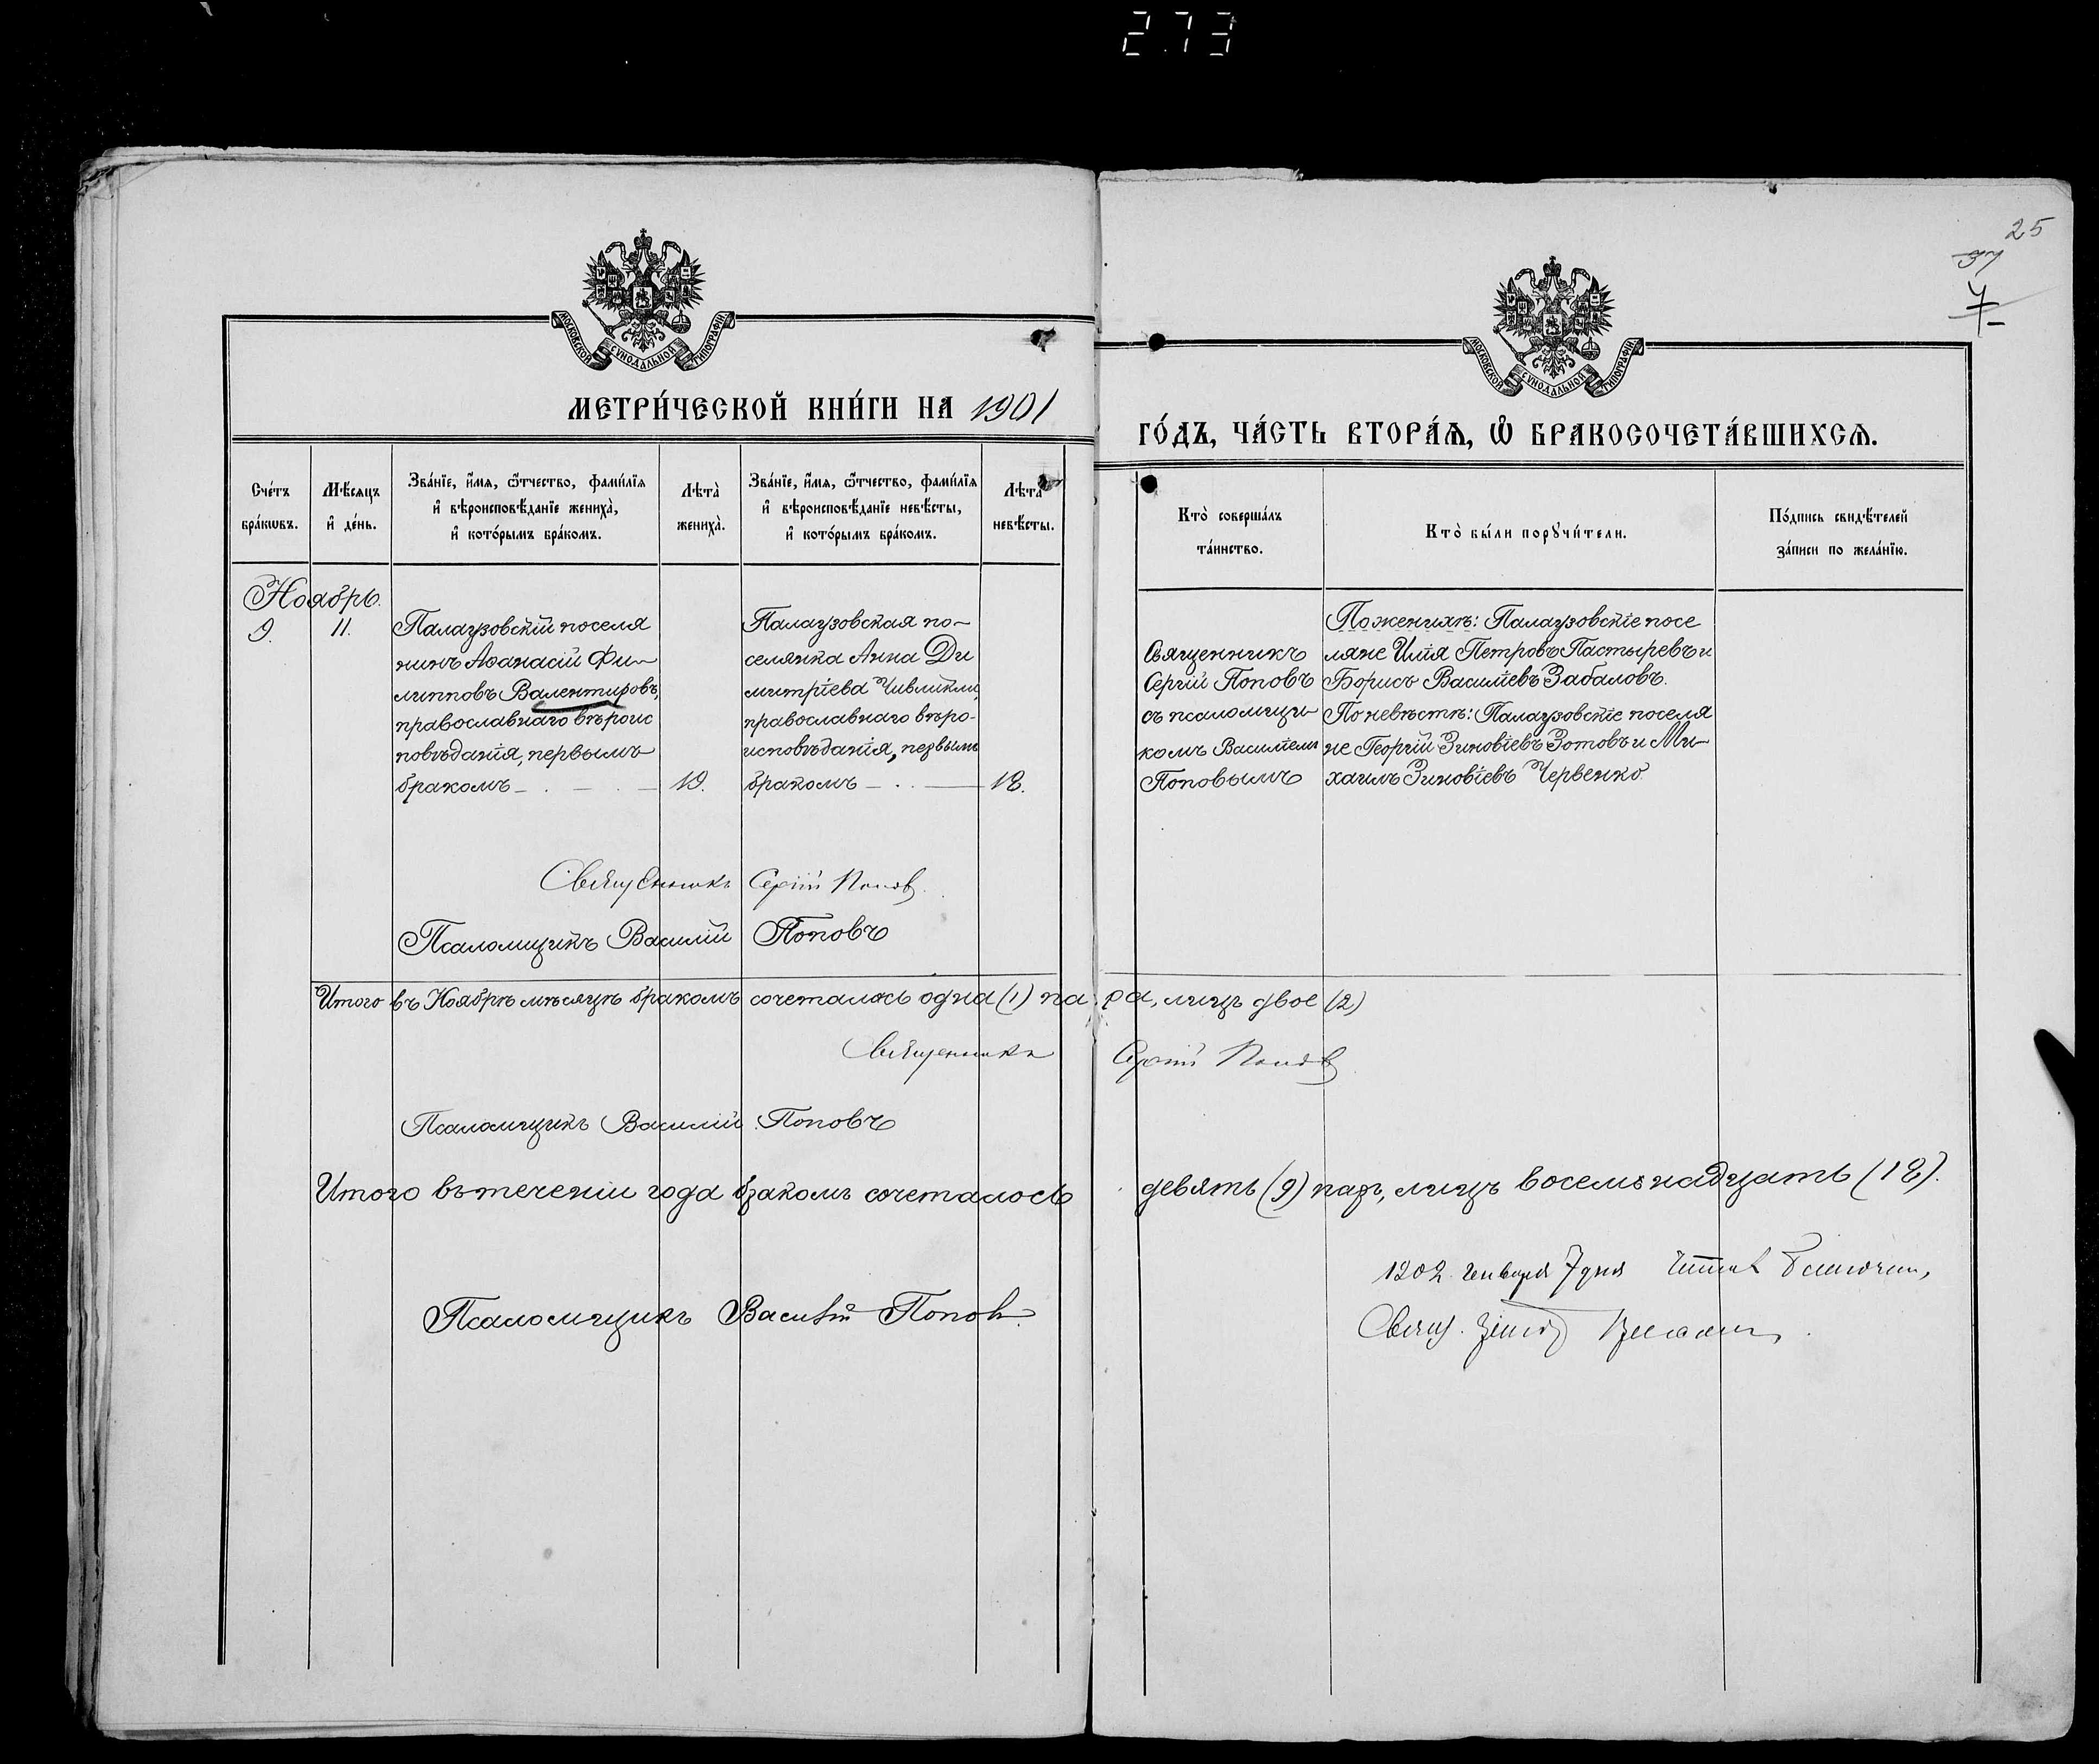 2.73
25
МОСКОВСКОЙ СѴНОДАЛЬНОЙ ТИПОГРАФІИ
МОСКОВСКОЙ СѴНОДАЛЬНОЙ ТИПОГРАФІИ
МЕТРИ́ЧЕСКОЙ КНИ́ГИ НА 1901
ГО́ДЪ, ЧА́СТЬ ВТОРА́Ѧ, Ѡ҆ БРАКОСОЧЕТА́ВШИХСѦ.
Сче́тъ
бра́кѡвъ.
Мѣ́сяцъ
и҆ де́нь.
Зва́нїе, и҆́мѧ, ѻ҆́тчество, фами́лїѧ
и҆ вѣроисповѣ́данїе жениха̀,
и҆ кото́рымъ бра́комъ.
Лѣта̀
жениха̀.
Зва́нїе, и҆́мѧ, ѻ҆́тчество, фами́лїѧ
и҆ вѣроисповѣ́данїе невѣ́сты,
и҆ кото́рымъ бра́комъ.
Лѣта̀
невѣ́сты.
Кто̀ соверша́лъ
та́инство.
Кто̀ бы́ли порꙋчи́тели.
По́дпись свидѣ́телей
за́писи по жела́нїю.
Ноябрь.
9.
11.
Палаузовскій поселя
нинъ Аѳанасій Фи-
липповъ Валентировъ,
православнаго вѣроис
повѣданія, первымъ
бракомъ
19.
Палаузовская по-
селянка Анна Ди
митріева Чивликли,
православнаго вѣро-
исповѣданія, первымъ
бракомъ
18.
Священникъ
Сергій Поповъ
съ псаломщи-
комъ Василіемъ
Поповымъ
По женихѣ: Палаузовскіе посе
ляне Илія Петровъ Пастыревъ и
Борисъ Василіевъ Забаловъ.
По невѣстѣ: Палаузовскіе поселя
не Георгій Зиновіевъ Зотовъ и Ми-
хаилъ Зиновіевъ Червенко.
Священникъ Сергій Попов
Псаломщикъ Василій Поповъ
Итого въ Ноябрѣ мѣсяцѣ бракомъ сочеталось одна (1) пара, лицъ двое (2)
Священникъ Сергій Попов
Псаломщикъ Василій Поповъ
Итого въ теченіи года бракомъ сочеталось девять (9) паръ, лицъ восемьнадцать (18).
1902. Января 7 дня
Псаломщикъ Василій Попов
Свящ.